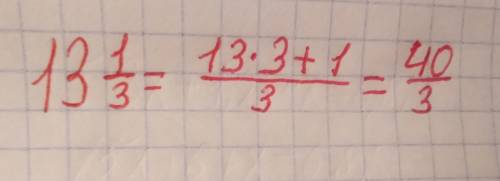 13 1/3 = (13·3+1)/3 = 40/3